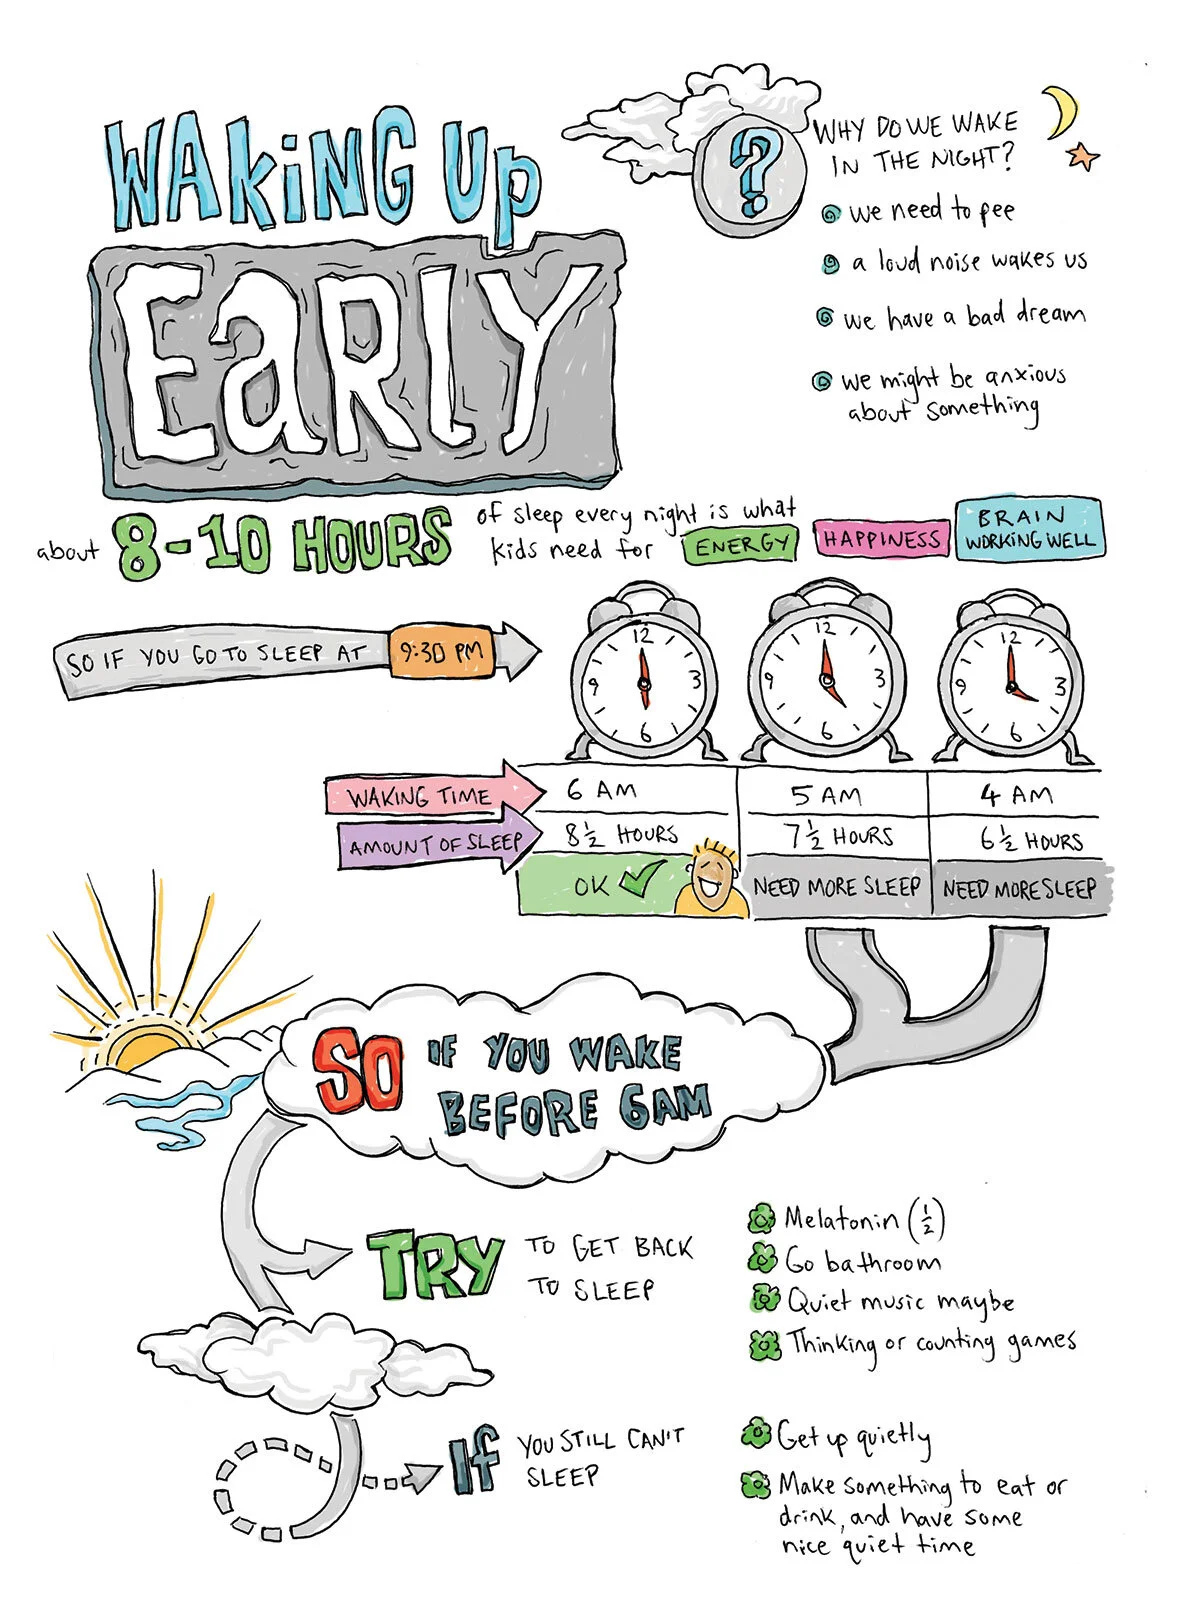 WAKING UP
EARLY
?
WHY DO WE WAKE
IN THE NIGHT?
we need to pee
a loud noise wakes us
we have a bad dream
we might be anxious
about something
about 8-10 HOURS of sleep every night is what
kids need for ENERGY HAPPINESS BRAIN
WORKING WELL
SO IF YOU GO TO SLEEP AT 9:30 PM
12 3 6 9
12 3 6 9
12 3 6 9
WAKING TIME 6 AM 5 AM 4 AM
AMOUNT OF SLEEP 8 1/2 HOURS 7 1/2 HOURS 6 1/2 HOURS
OK NEED MORE SLEEP NEED MORE SLEEP
SO IF YOU WAKE
BEFORE 6AM
TRY TO GET BACK
TO SLEEP
Melatonin (1/2)
Go bathroom
Quiet music maybe
Thinking or counting games
If YOU STILL CAN'T
SLEEP
Get up quietly
Make something to eat or
drink, and have some
nice quiet time